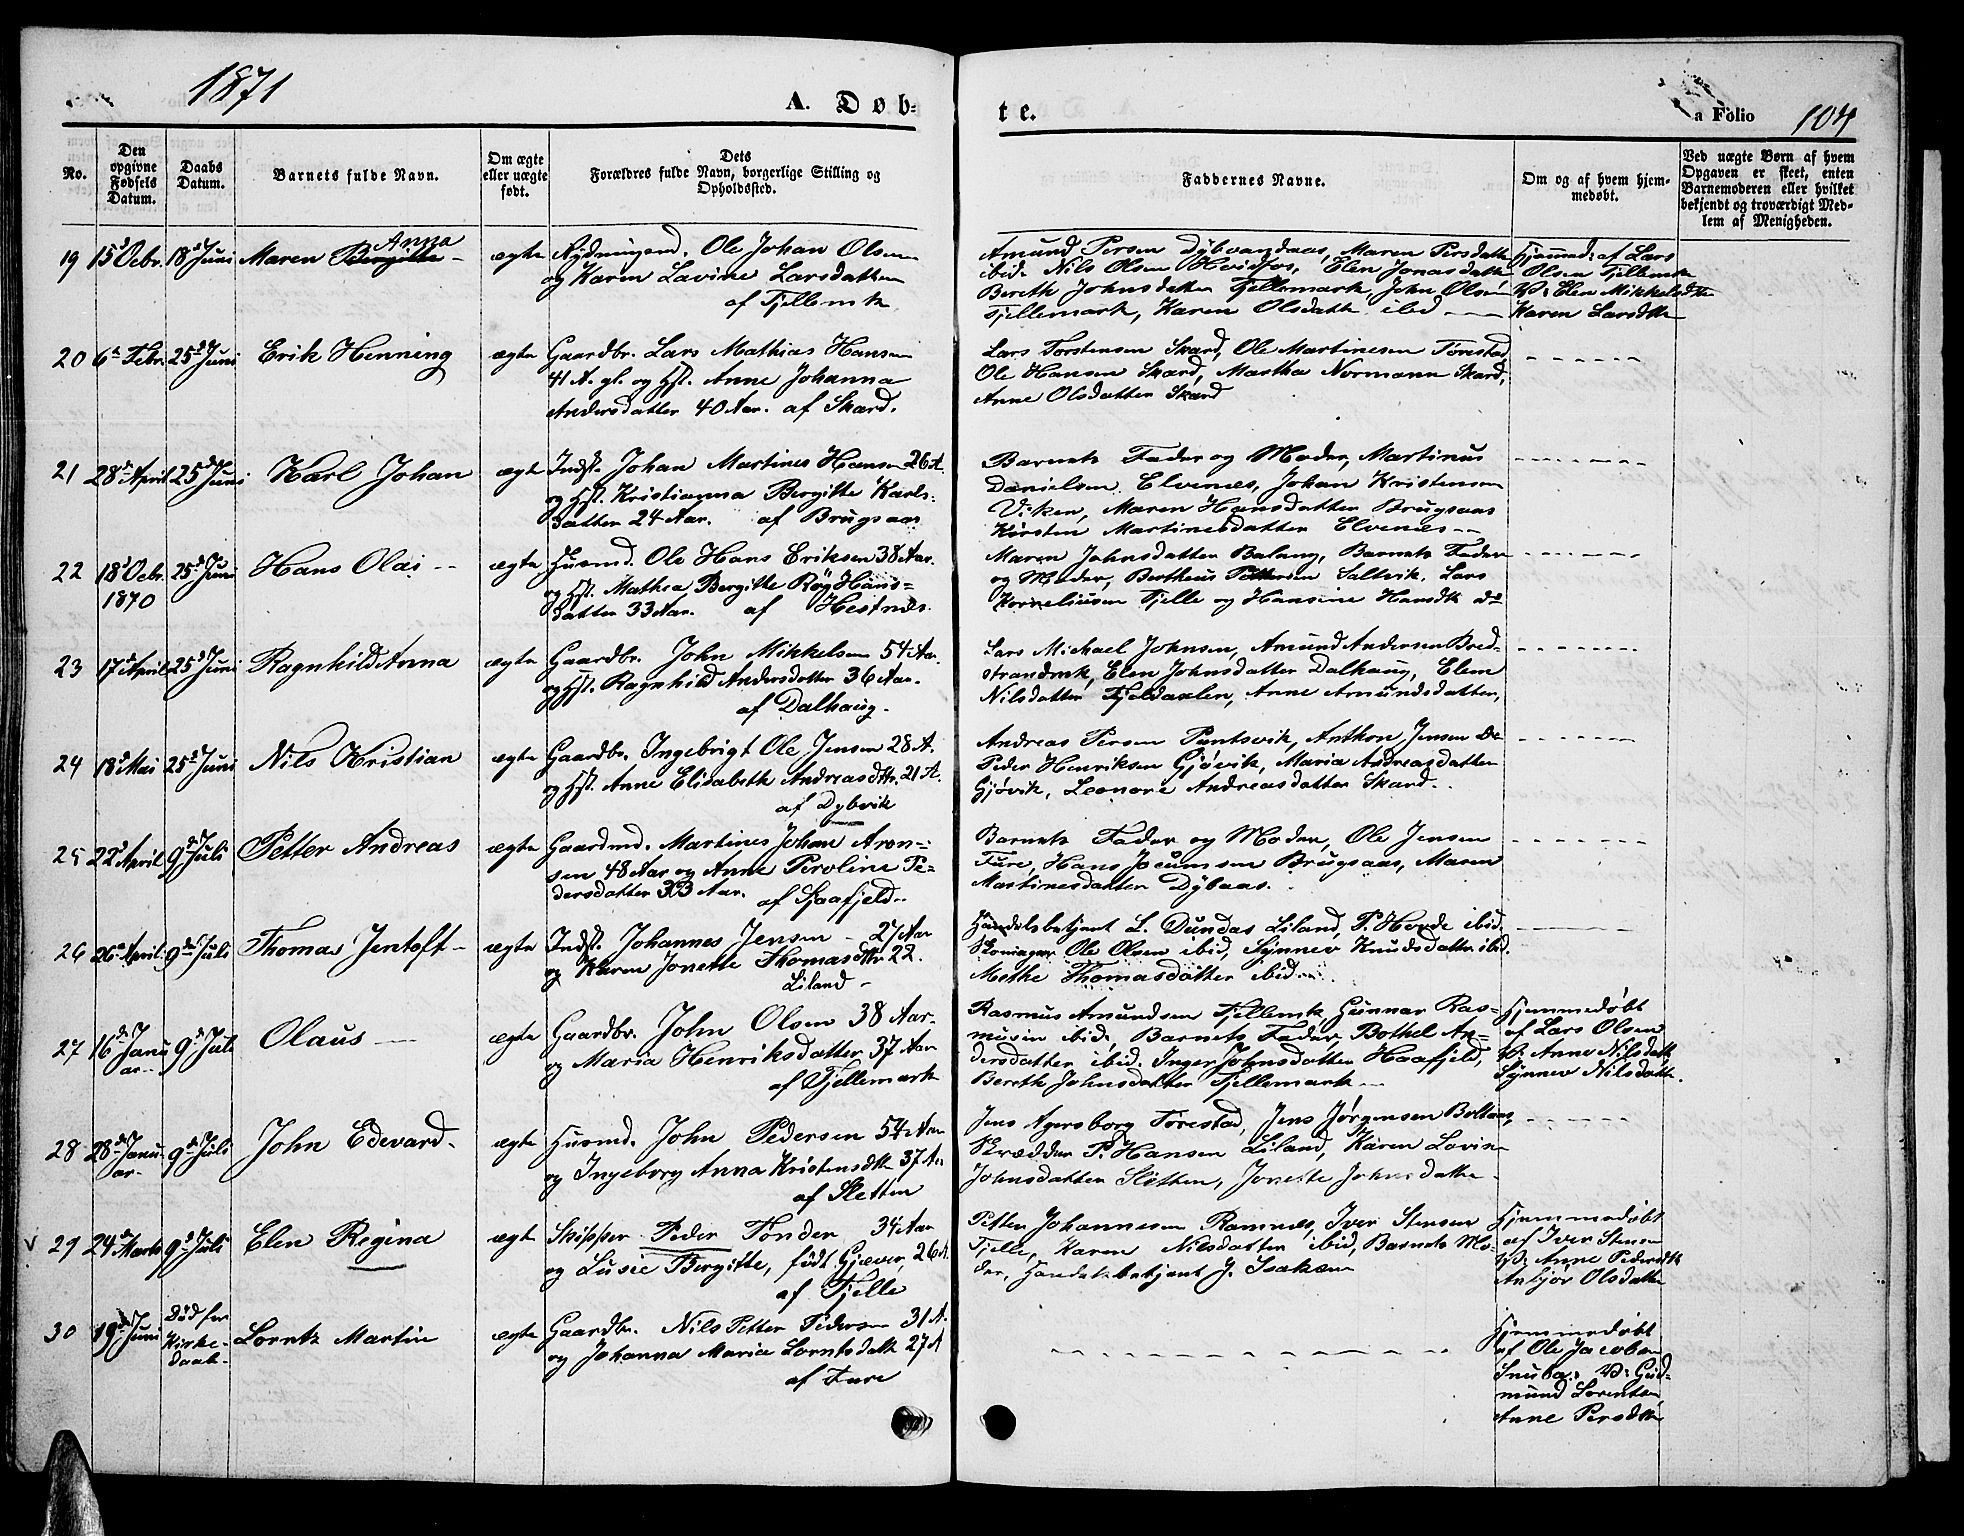 1871
A. Døb-
te.
a Folio 104
No.
Den opgivne Fødsels Datum.
Daabs Datum.
Barnets fulde Navn.
Om ægte eller uægte født.
Dets Forældres fulde Navn, borgerlige Stilling og Opholdssted.
Faddernes Navne.
Om og af hvem hjemmedøbt.
Ved uægte Børn af hvem Opgaven er skeet, enten Barnemoderen eller hvilket bekjendt og troværdigt Medlem af Menigheden.
19 15d Febr. 18d Juni Maren Bergitte Anna ægte Rydningsmd. Ole Johan Olsen
og Karen Lavine Larsdatter
af Fjellemk
Amund Persen Dybvandaas, Maren Persdatter
ibid. Nils Olsen Hvidfos, Elen Jonasdatter
Bereth Johnsdatter Fjellemark, John Olsen
Fjellemark, Karen Olsdatter ibid
Hjemmed: af Lars
Olsen Fjellemk
V: Elen Mikkelsdtr
Karen Larsdtr
20 6d Febr. 25d Juni Erik Henning ægte Gaardbr. Lars Mathias Hansen
41 A. gl. og Hst. Anne Johanna
Andersdatter 40 Aar. af Skard.
Lars Torstensen Skard, Ole Martinesen Torestad
Ole Hansen Skard, Martha Normann Skard,
Anne Olsdatter Skard
21 28d April 25d Juni Karl Johan ægte Indst. Johan Martines Hansen 26 A.
og Hst. Kristianna Bergitte Karls-
datter 24 Aar. af Brugsaas
Barnets Fader og Moder, Martinus
Danielsen Elvenes, Johan Kristensen
Viken, Maren Hansdatter Brugsaas
Kirsten Martinesdatter Elvenes
22 18d Febr. 1870 25d Juni Hans Olai ægte Husmd. Ole Hans Eriksen 38 Aar.
og Hst. Mathea Bergitte Røg Hans-
datter 33 Aar. af Hestnes.
Maren Johnsdatter Balang, Barnets Fader
og Moder, Bertheus Pettersen Saltvik, Lars
Korneliusen Fjelle og Hansine Hansdtr do
23 17d April 25d Juni Ragnhild Anna ægte Gaardbr. John Mikkelsen 54 Aar.
og Hst. Ragnhild Andersdatter 36 Aar.
af Dalhaug.
Lars Michael Johnsen, Amund Andersen Bred-
strandmk, Elen Johnsdatter Dalhaug, Elen
Nilsdatter Fjeldaxlen, Anne Amundsdatter,
24 18d Mai 25d Juni Nils Kristian ægte Gaardbr. Ingebrigt Ole Jensen 28 A.
og Hst. Anne Elisabeth Andreasdtr. 21 A.
af Dybvik
Andreas Persen Puntsvik, Anthon Jensen Do
Peder Henriksen Gjøvik, Maria Andreasdatter
Gjøvik, Leonore Andreasdatter Skard.
25 22d April 9d Juli Petter Andreas ægte Gaardmd. Martines Johan Aron-
sen 48 Aar og Anne Peroline Pe-
dersdatter 33 Aar. af Sjaafjeld
Barnets Fader og Moder, Ole Jensen
Fure, Hans Jocumsen Brugsaas, Maren
Martinesdatter Dybaas.
26 26d April 9d Juli Thomas Jentoft ægte Indst. Johannes Jensen 27 Aar
og Karen Jonette Thomasdtr 22.
Liland
Handelsbetjent L. Dundas Liland, P. Hovde ibid.
Skomager Ole Olsen ibid, Synnev Knudsdatter ibid.
Methe Thomasdatter ibid.
27 16d Januar 9d Juli Olaus ægte Gaardbr. John Olsen 38 Aar
og Maria Henriksdatter 37 Aar
af Fjellemark
Rasmus Amundsen Fjellemk, Gunnar Ras-
musen ibid, Barnets Fader, Bothel An-
dersdatter ibid. Inger Johnsdatter Haafjeld,
Bereth Johnsdatter Fjellemark
Hjemmedøbt
af Lars Olsen
V: Anne Nilsdtr
Synnev Nilsdatter.
28 28d Januar 9d Juli John Edevard ægte Husmd. John Pedersen 54 Aar
og Ingeborg Anna Kristensdtr 37 Aar
af Sletten
Jens Agersborg Torestad, Jens Jørgensen Boltaas,
Skrædder P. Hansen Liland, Karen Lovin
Johnsdatter Sletten, Jonette Johnsdatter
29 24d Marts 9d Juli Elen Regina ægte Skipper Peder Tønder 34 Aar
og Lusie Bergitte, født Gjæver, 26 A.
af Fjelle
Petter Johannesen Ramnes, Iver Stensen
Fjelle, Karen Nilsdatter ibid, Barnets Mo-
der, Handelsbetjent J. Isaksen
Hjemmedøbt
af Iver Stensen
V: Anne Pedersdtr
Anbjør Olsdatter
30 19d Juni Død før Kirke-daab Lorntz Martin ægte Gaardbr. Nils Petter Pedersen 31 A.
og Johanna Maria Lorntsdatter 27 A
af Fure
Hjemmedøbt
af Ole Jacobsen
V: Gud-
mund Lorentsen
Anne Persdtr